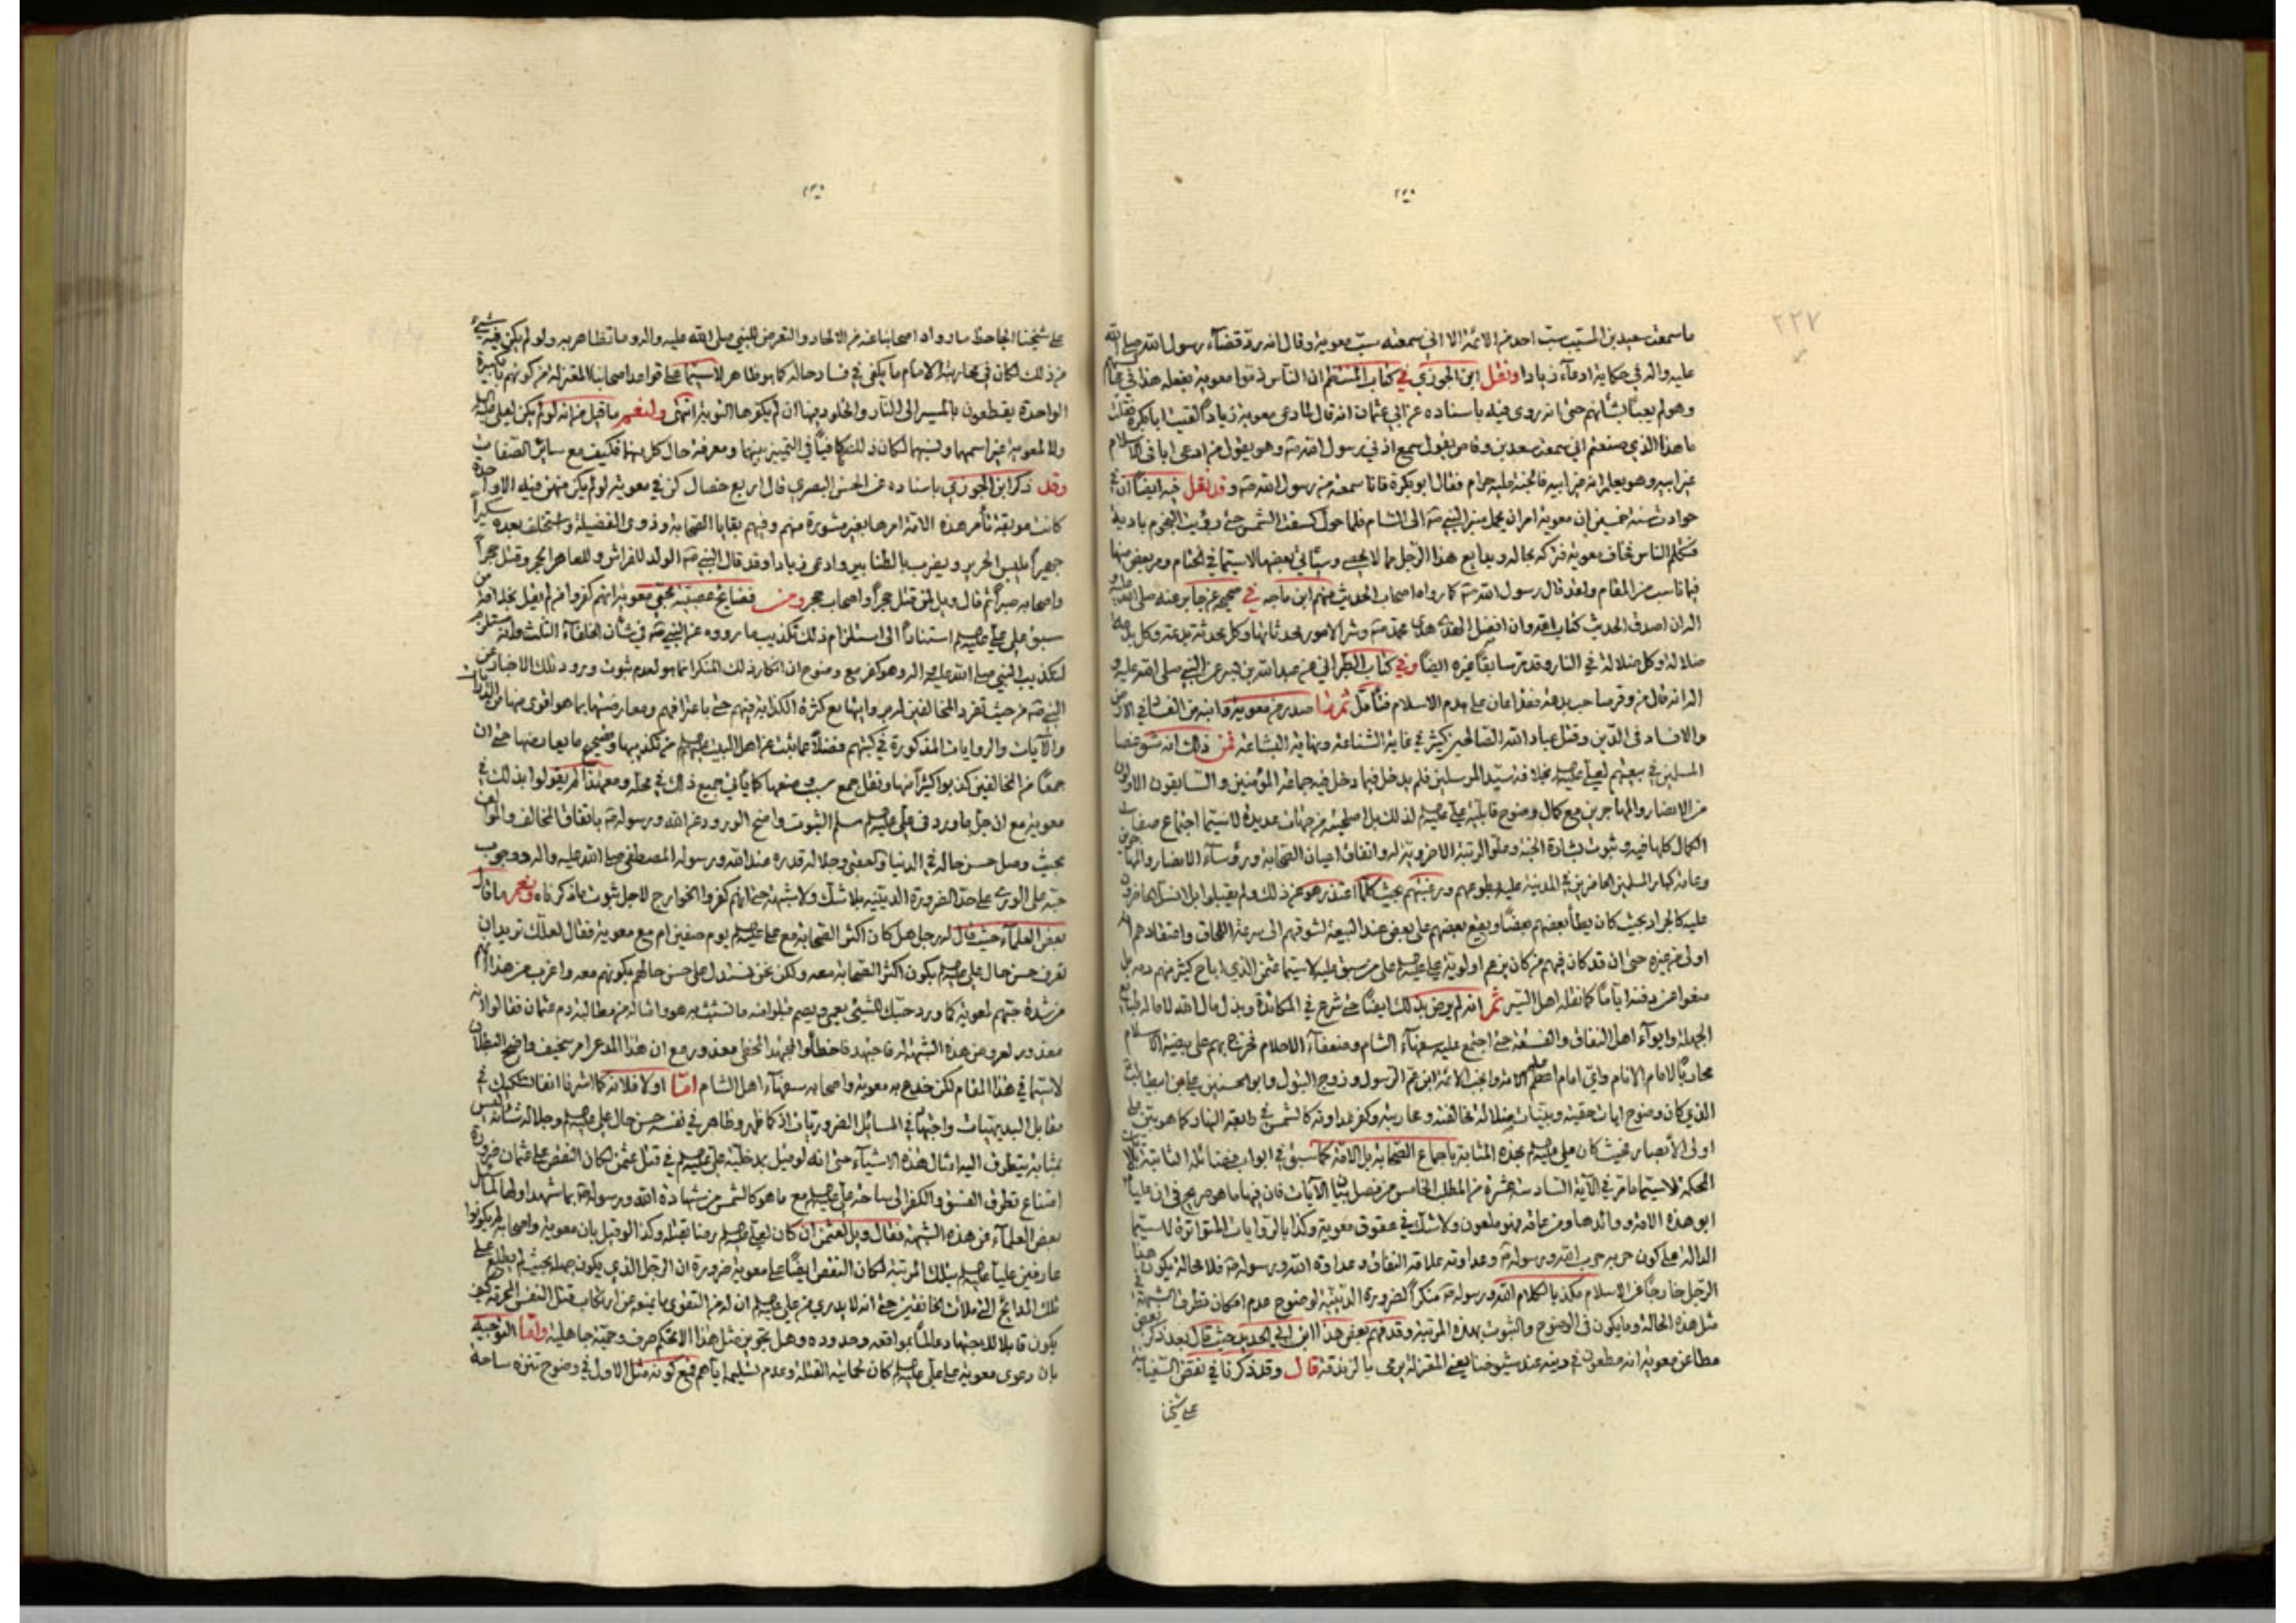 ٢٢٧
ما سمعت سعيد بن المسيب سب احد من الائمة الا اني سمعته سب معوية وقال انه رد قضاء رسول الله صلى الله
عليه واله في حكاية ادعاء زيادا ونقل ابن الجوزي في كتاب المنتظم ان الناس ذموا معوية بفعله هذا في
وهو لم يعبأ بشأنهم حتى انه روى فيه باسناده عن ابي عثمان انه قال لما ادعى معوية زيادا لقيت ابا بكرة فقلت
ما هذا الذي صنعتم اني سمعت سعد بن وقاص يقول سمع اذني رسول الله صه وهو يقول من ادعى ابا في الاسلام
غير ابيه وهو يعلم انه غير ابيه فالجنة عليه حرام فقال ابو بكرة فانا سمعته من رسول الله صه وقد نقل فيه ايضا ان في
حوادث سنة خمسين ان معوية امر ان يحمل منبر النبي صه الى الشام فلما حول كسفت الشمس حتى رؤيت النجوم بادية
فتكلم الناس فخاف معوية فتركه بحاله وبدايع هذا الرجل مما لا يحصى وسيأتي بعضها لاسيما في الختام ومر بعض منها
فيما ناسب من المقام ولقد قال رسول الله صه كما رواه اصحاب الحديث منهم ابن ماجه في صحيحه عن جابر عنه صلى الله عليه و
اله ان اصدق الحديث كتاب الله وان افضل الهدى هدى محمد صه وشر الامور محدثاتها وكل محدثة بدعة وكل بدعة
ضلالة وكل ضلالة في النار وقد مر سابقا غيره ايضا وفي كتاب الطبراني عن عبد الله بن بسر عن النبي صلى الله عليه و
اله انه قال من وقر صاحب بدعة فقد اعان على هدم الاسلام فتأمل ثم ما صدر من معوية وابنه من الفساد في الارض
والافساد في الدين وقتل عباد الله الصالحين كثير في غاية الشناعة ونهاية البشاعة فمن ذلك انه شق عصا
المسلمين في بيعتهم لعلي عليه السلم بخلافة سيد المرسلين فلم يدخل فيما دخل فيه جماعة المؤمنين والسابقون الاولون
من الانصار والمهاجرين مع كمال وضوح قابلية علي عليه السلم لذلك بل اصلحيته من جهات عديدة لاسيما اجتماع صفات
الكمال كلها فيه وثبوت بشارة الجنة وعلو الرتبة الاخروية له واتفاق اعيان الصحابة ورؤساء الانصار والمهاجرين
وعامة كبار المسلمين الحاضرين في المدينة عليه بطوعهم ورغبتهم بحيث كلما اعتذر هو عن ذلك ولم يقبلوا بل انسلوا
عليه كالجراد بحيث كان يطأ بعضهم بعضا ويقع بعضهم على بعض عند البيعة لشوقهم الى سرعة اللحاق واعتقادهم انه
اولى من غيره حتى ان قد كان فيهم من كان يزعم اولوية علي عليه السلم على من سبق عليه لاسيما عثمن الذي اباح كثير منهم دمه بل
منعوا عن دفنه اياما كما نقله اهل السير ثم انه لم يرض بذلك ايضا حتى شرع في المكائدة وبذل مال الله لامالة طباع
الجهلة وايواء اهل النفاق والفسقة حتى اجتمع عليه سفهاء الشام وضعفاء الاحلام فخرج بهم على بيضة الاسلام
محاربا لامام الانام واي امام اعلم الامة وانجب الائمة ابن عم الرسول وزوج البتول وابو الحسنين علي بن ابيطالب
الذي كان وضوح ايات حقيته وبينات ضلالة مخالفته ومحاربيه وكفر عداوته كالشمس في رابعة النهار كما هو بين على
اولى الابصار فحيث كان علي عليه السلم بهذه المثابة باجماع الصحابة بل الامة كما سبق في ابواب فضائله الثابتة بالآيات
المحكمة لاسيما ما مر في الآية السادسة عشرة من المطلب الخامس من فصل بيان الآيات فان فيها ما هو صريح في ان عليا
ابو هذه الامة ووالدها ومن عاقه فهو ملعون ولا شك في عقوق معوية وكذا بالروايات المتواترة لاسيما
الدالة على كون حربه حرب الله ورسوله صه وعداوته علامة النفاق وعداوة الله ورسوله صه فلا محالة يكون هذا
الرجل خارجا عن الاسلام مكذبا لكلام الله ورسوله صه منكرا لضروري الدينية لوضوح عدم امكان تطرق الشبهة في
مثل هذه الحالة وما يكون في الوضوح والثبوت بهذه المرتبة وقد فهم بعض هذا ابن ابي الحديد حيث قال بعد ذكر بعض
مطاعن معوية انه مطعون في دينه عند شيوخنا يعني المعتزلة يرمى بالزندقة قال وقد ذكرنا في نقض السفيانية
على شيخنا
على شيخنا الجاحظ ما رواه اصحابنا عنه من الالحاد والتعرض للنبي صلى الله عليه واله وما تظاهر به ولو لم يكن فيه شيء
من ذلك لكان في محاربته الامام ما يكفي في فساد حاله كما هو ظاهر لاسيما على قواعد اصحابنا المعتزلة من كونهم بالكبيرة
الواحدة يقطعون بالمسير الى النار والخلود فيها ان لم يكفرها التوبة انتهى ولنعم ما قيل من انه لو لم يكن لعلي عليه السلم
ولا لمعوية غير اسمهما ونسبهما لكان ذلك كافيا في التمييز بينهما ومعرفة حال كل منهما فكيف مع سائر الصفات
وقد ذكر ابن الجوزي باسناده عن الحسن البصري قال اربع خصال كن في معوية لو لم يكن منهن فيه الا واحدة
كانت موبقة تأمر هذه الامة امرها بغير مشورة منهم وفيهم بقايا الصحابة وذوي الفضيلة واستخلف بعده سكيرا
خميرا يلبس الحرير ويضرب بالطنابير وادعى زيادا وقد قال النبي صه الولد للفراش وللعاهر الحجر وقتل حجرا
واصحابه صبرا ثم قال ويل لمن قتل حجرا واصحاب حجر ومن فضايح عصبية محبي معوية انهم كفروا من لم يقل بخلافة من
سبق على علي عليه السلم استنادا الى استلزام ذلك تكذيب ما رووه عن النبي صه في شأن الخلفاء الثلث
لتكذيب النبي صلى الله عليه واله وهو كفر مع وضوح ان انكار ذلك المنكر انما هو لعدم ثبوت ورود تلك الاخبار عن
النبي صه من حيث تفرد المخالفين لهم بروايتها مع كثرة الكذابة فيهم حتى باعترافهم ومعارضتها بما هو اقوى منها من
والآيات والروايات المذكورة في كتبهم فضلا عما ثبت عن اهل البيت عليهم السلم من تكذيبها وتصحيح ما يعارضها حتى ان
جمعا من المخالفين كذبوا كثيرا منها ونقل جمع سبب وضعها كما يأتي جميع ذلك في محله ومعهذا لم يقولوا بذلك في
معوية مع ان جل ما ورد في علي عليه السلم مسلم الثبوت واضح الورود عن الله ورسوله صه باتفاق المخالف والموالف
بحيث وصل حسن حاله في الدنيا والعقبى وجلالة قدره عند الله ورسوله المصطفى صلى الله عليه واله ووجوب
حبه على الورى على حد الضرورة الدينية بلا شك ولا شبهة حتى انهم كفروا الخوارج لاجل ثبوت ما ذكرناه ونعم ما قال
بعض العلماء حيث قال له رجل هل كان اكثر الصحابة مع علي عليه السلم يوم صفين ام مع معوية فقال لعلك تريد ان
تعرف حسن حال علي عليه السلم بكون اكثر الصحابة معه ولكن نحن نستدل على حسن حالهم بكونهم معه واغرب من هذا انهم
من شدة حبهم لمعوية كما ورد حبك للشيء يعمي ويصم قبلوا منه ما تشبث به هو وامثاله من مطالبة دم عثمان فقالوا انه
معذور لعروض هذه الشبهة له فاجتهد فاخطأ والمجتهد المخطي معذور مع ان هذا المدعى امر سخيف واضح البطلان
لاسيما في هذا المقام لكن خدع به معوية واصحابه سفهاء اهل الشام اما اولا فلانه كما اشرنا انفا تشكيك في
مقابل البديهيات واجتهاد في المسائل الضروريات اذ كما ظهر وظاهر في نفسه حسن حال علي عليه السلم وجلالة شأنه ليس
بمثابة يتطرق اليه امثال هذه الاشياء حتى انه لو قيل بدخلية علي عليه السلم في قتل عثمن لكان النقص على عثمان ضرورة
امتناع تطرق الفسق والكفر الى ساحة علي عليه السلم مع ما هو كالشمس من شهادة الله ورسوله صه بما شهدا
بعض العلماء عن هذه الشبهة فقال ويل لعثمن ان كان لعلي عليه السلم رضا بقتله وكذا لو قيل بان معوية واصحابه لم يكونوا
عارفين عليا عليه السلم بتلك المرتبة لكان النقص ايضا على معوية ضرورة ان الرجل الذي يكون جهله بحيث لم يطلع على
تلك المدائح التي ملأت الخافقين حتى انه لا يدري من علي عليه السلم ان له من التقوى ما يمنعه عن ارتكاب قتل النفس المحرمة كيف
يكون قابلا للاجتهاد عالما بمواقعه وحدوده وهل تجويز مثل هذا الا تحكم صرف وحمية جاهلية واما التوجيه
بان دعوى معوية على علي عليه السلم كان لحماية القتلة وعدم تسليمه اياهم فمع كونه مثل الاول في وضوح تنزه ساحة